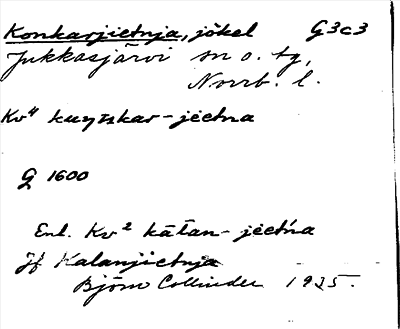 Konkarjietnja, jökel G3c3
Jukkasjärvi sn o. tg,
Norrb. l.
Kv⁴ kuŋ̄skar-jietna
G 1600
Enl. Kv² kātan-jieet́na
Jf Kalanjietnja
Björn Collinder 1935.